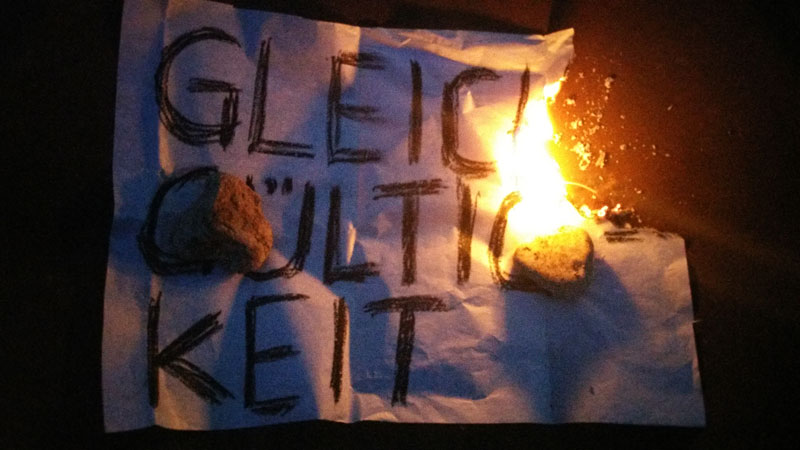 GLEICH
GÜLTIG=
KEIT